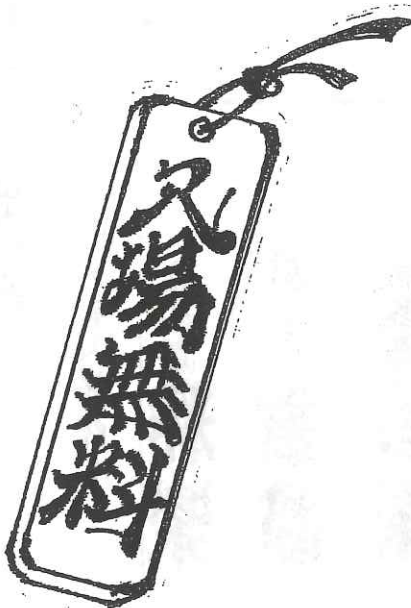 入場無料